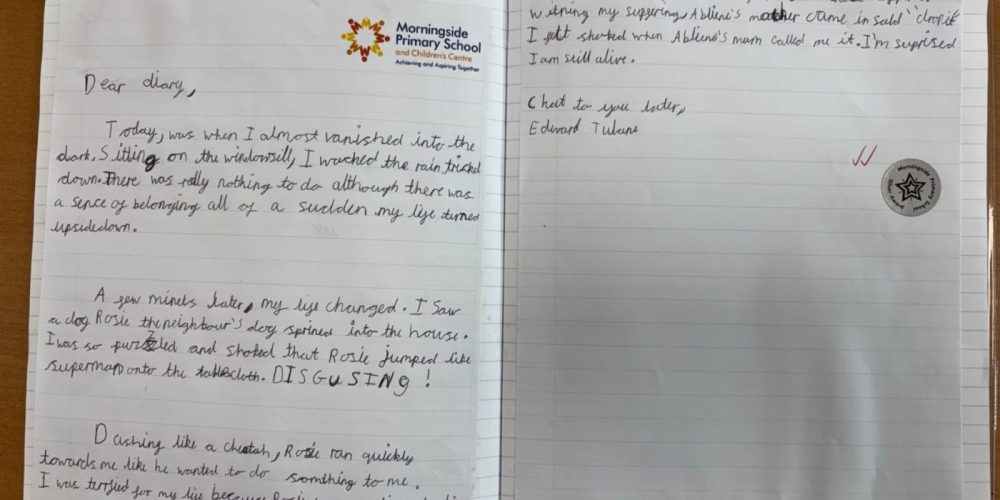 Morningside
Primary School
and Children's Centre
Achieving and Aspiring Together
Dear diary,
Today, was when I almost vanished into the
dark. Sitting on the windowsill, I wached the rain trickel
down. There was rally nothing to do although there was
a sence of belonging all of a sudden my life turned
upsidedown.
A few minets later, my life changed. I saw
a dog Rosie the neighbour's dog sprined into the house.
I was so puzzled and shoked that Rosie jumped like
superman onto the tablecloth. DISGUSING!
Dashing like a cheatah, Rosie ran quickly
towards me like he wanted to do somthing to me.
I was terfied for my life because Rosie
witning my suffering, Abliene's mother came in said "drop it
I felt shoked when Abliene's mum called me it. I'm suprised
I am still alive.
Chat to you later,
Edward Tulane
Morningside Primary School